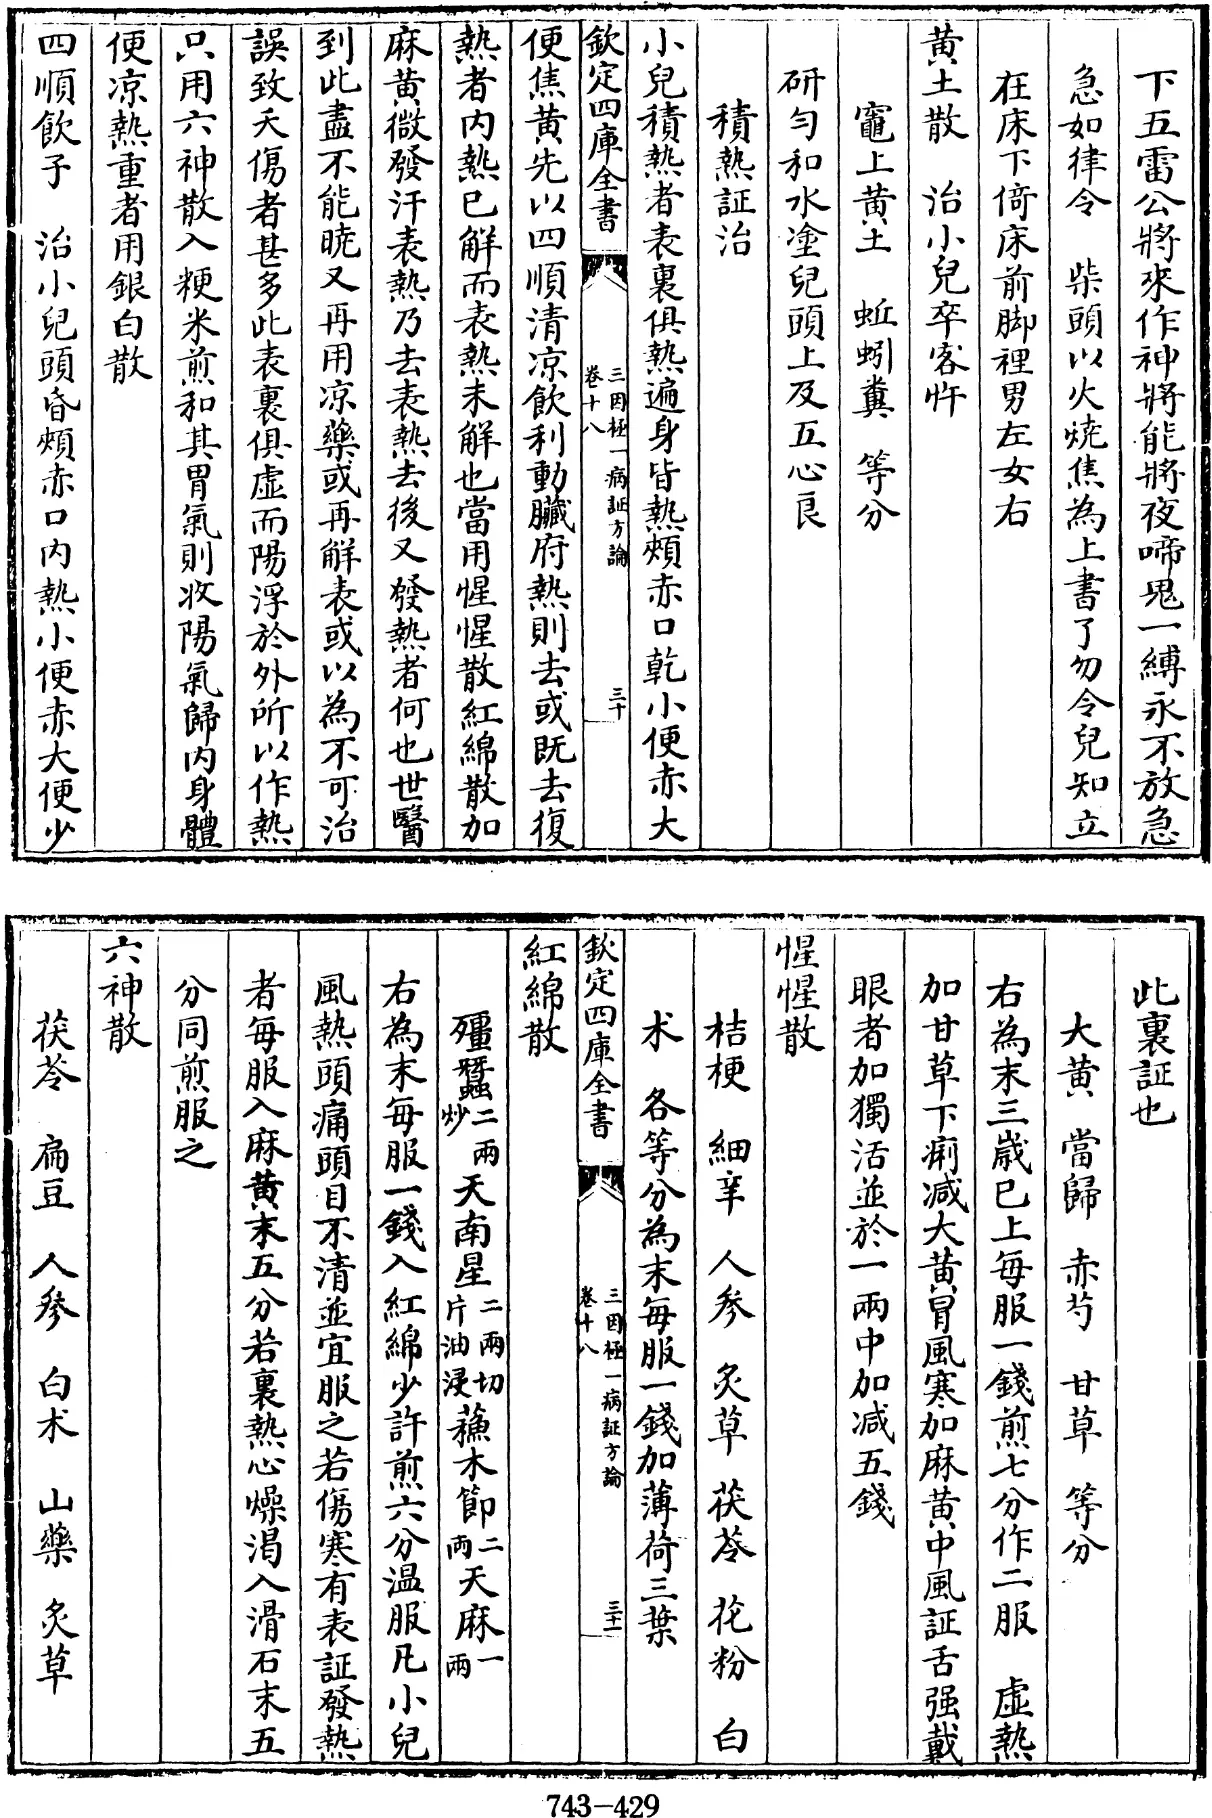 下五雷公將來作神將能將夜啼鬼一縛永不放急
急如律令　柴頭以火燒焦為上書了勿令兒知立
在床下倚床前脚裡男左女右
黄土散　治小兒卒客忤
竈上黄土　蚯蚓糞　等分
研勻和水塗兒頭上及五心良
積熱証治
小兒積熱者表裏俱熱遍身皆熱頰赤口乾小便赤大
欽定四庫全書
三因極一病証方論
卷十八
三十
便焦黄先以四順清凉飲利動臟府熱則去或既去復
熱者内熱已解而表熱未解也當用惺惺散紅綿散加
麻黄微發汗表熱乃去表熱去後又發熱者何也世醫
到此盡不能曉又再用凉藥或再解表或以為不可治
誤致夭傷者甚多此表裏俱虚而陽浮於外所以作熱
只用六神散入粳米煎和其胃氣則收陽氣歸内身體
便凉熱重者用銀白散
四順飲子　治小兒頭昏頰赤口内熱小便赤大便少
此裏証也
大黄　當歸　赤芍　甘草　等分
右為末三歲已上每服一錢煎七分作二服　虚熱
加甘草下痢減大黄冒風寒加麻黄中風証舌强戴
眼者加獨活並於一兩中加減五錢
惺惺散
桔梗　細辛　人參　炙草　茯苓　花粉　白
术　各等分為末每服一錢加薄荷三葉
欽定四庫全書
三因極一病証方論
卷十八
三十一
紅綿散
殭蠶二兩炒　天南星二兩切片油浸　蘓木節二兩　天麻一兩
右為末每服一錢入紅綿少許煎六分温服凡小兒
風熱頭痛頭目不清並宜服之若傷寒有表証發熱
者每服入麻黄末五分若裏熱心燥渴入滑石末五
分同煎服之
六神散
茯苓　扁豆　人參　白术　山藥　炙草
743-429